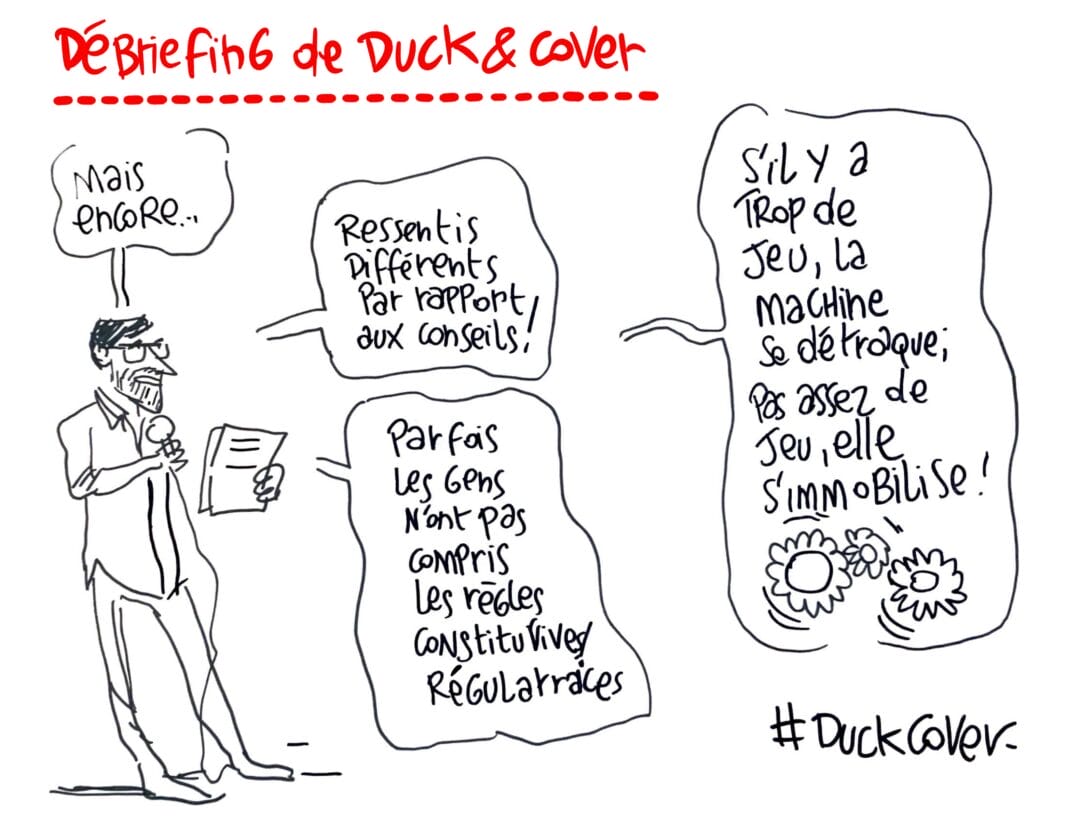 Débriefing de Duck & Cover
Mais
encore...
Ressentis
Différents
Par rapport
aux conseils!
Parfois
Les Gens
N'ont pas
compris
Les règles
S'il y a
TROP de
Jeu, la
machine
se détraque;
Pas assez de
Jeu, elle
s'immobilise!
#DuckCover